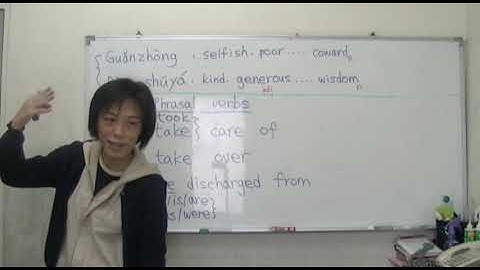 Guǎnzhòng . selfish . poor .... coward n
shúyá . kind . generous .... wisdom n
adj
Phrasal verbs
took
take } care of
take over
discharged from
is/are
was/were